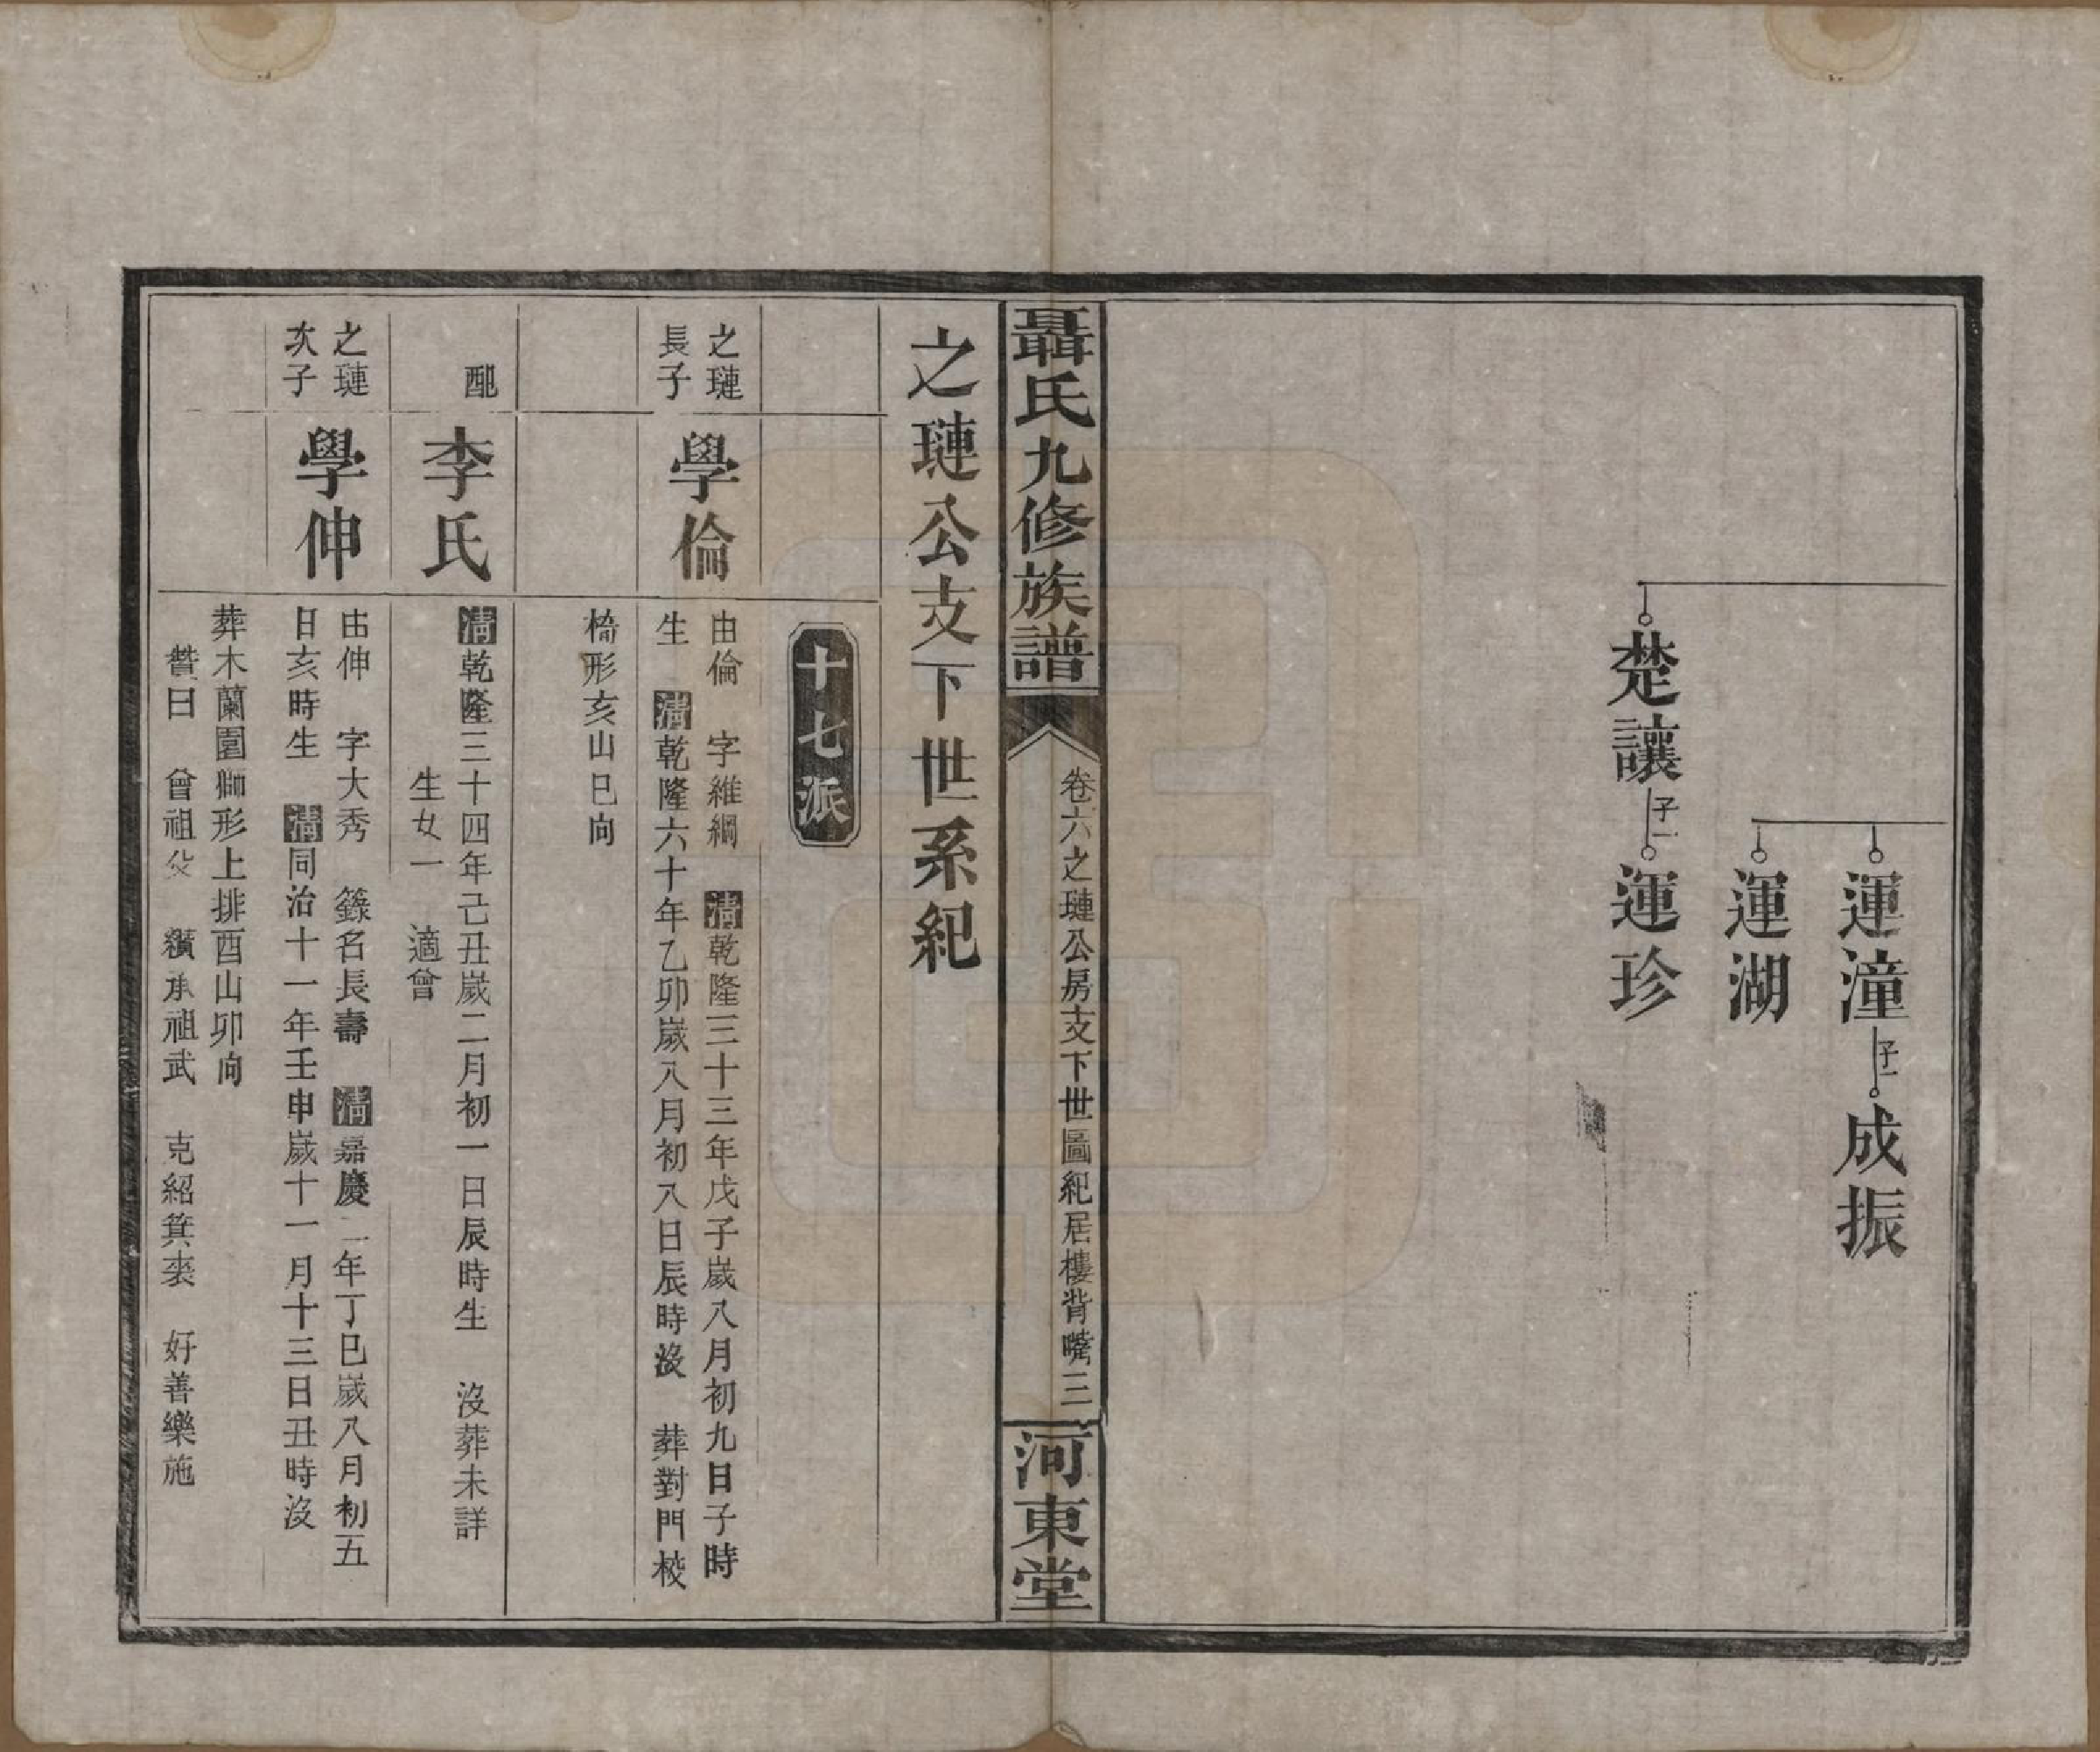 運潼 子一 成振
運湖
楚讓 子一 運珍
聶氏九修族譜
卷六之璉公房支下世圖紀居樓背嘴 三
河東堂
之璉公支下世系紀
十七派
之璉
長子
學倫
由倫 字維綱 清乾隆三十三年戊子歲八月初九日子時
生 清乾隆六十年乙卯歲八月初八日辰時沒 葬對門校
椅形亥山巳向
配
李氏
清乾隆三十四年己丑歲二月初一日辰時生 沒葬未詳
生女一 適曾
之璉
次子
學伸
由伸 字大秀 錄名長壽 清嘉慶二年丁巳歲八月初五
日亥時生 清同治十一年壬申歲十一月十三日丑時沒
葬木蘭園獅形上排酉山卯向
贊曰 曾祖父 纘承祖武 克紹箕裘 好善樂施